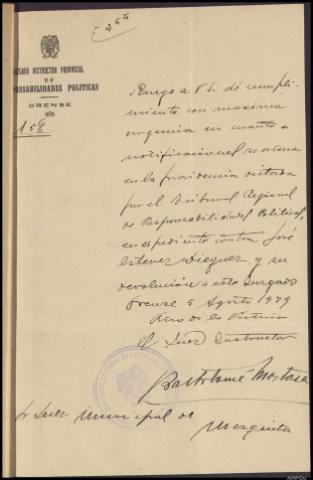 JUZGADO INSTRUCTOR PROVINCIAL
DE
RESPONSABILIDADES POLITICAS
ORENSE
158
Ruego a V.S. dé cumpli-
miento con maxima
urgencia en cuanto a
notificaciones se ordena
en la providencia dictada
por el Tribunal Regional
de Responsabilidades Politicas,
en expediente contra José
Estevez Dieguez, y su
devolución a este Juzgado
Orense 5 Agosto 1939
Año de la Victoria
El Juez Instructor
Bartolomé Mostaza
Sr Juez Municipal de
Mezquita